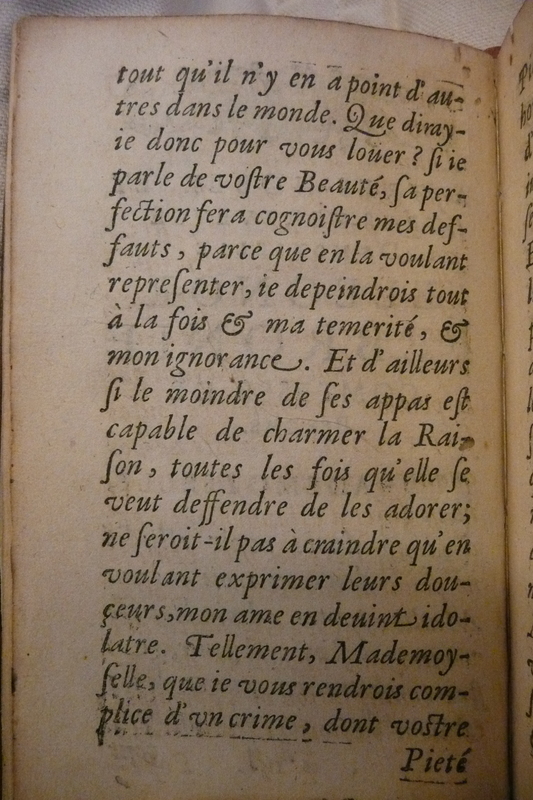 tout qu'il n'y en a point d'au-
tres dans le monde. Que diray-
ie donc pour vous loüer? ſi ie
parle de voſtre Beauté, ſa per-
fection fera cognoiſtre mes def-
fauts, parce que en la voulant
repreſenter, ie depeindrois tout
à la fois & ma temerité, &
mon ignorance. Et d'ailleurs
ſi le moindre de ſes appas eſt
capable de charmer la Rai-
ſon, toutes les fois qu'elle ſe
veut deffendre de les adorer;
ne ſeroit-il pas à craindre qu'en
voulant exprimer leurs dou-
çeurs, mon ame en deuint ido-
latre. Tellement, Mademoy-
ſelle, que ie vous rendrois com-
plice d'vn crime, dont voſtre
Pieté